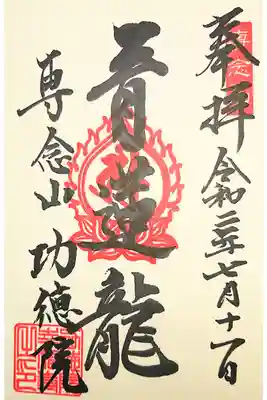 奉拝 令和二年七月十一日
青蓮龍
尊念山 功徳院